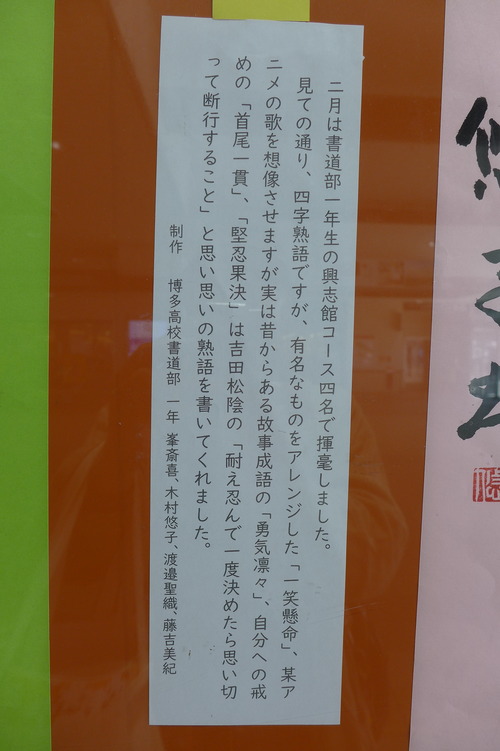 二月は書道部一年生の興志館コース四名で揮毫しました。
見ての通り、四字熟語ですが、有名なものをアレンジした「一笑懸命」、某ア
ニメの歌を想像させますが実は昔からある故事成語の「勇気凛々」、自分への戒
めの「首尾一貫」、「堅忍果決」は吉田松陰の「耐え忍んで一度決めたら思い切
って断行すること」と思い思いの熟語を書いてくれました。
制作 博多高校書道部 一年 峯斎喜、木村悠子、渡邉聖織、藤吉美紀